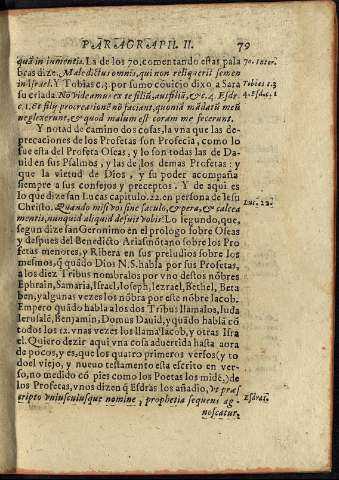 PARAGRAPH. II. 79
quā in inmentis. La de los 70, comentando estas pala 70. Inter.
bras dize. Maledictus omnis, qui non reliquerit semen
in Israel. Y Tobias c. 3. por sumo conuicio dixo a Sara Tobias c. 3
su criada. No videamus ex te filiū, aut filiā, &c. 4. Esdr 4. Esd. c. 1
c. 1. Et filij procreationē nō faciant, quoniā mādatū meū
neglexerunt, & quod malum est coram me fecerunt.
Y notad de camino dos cosas, vna que las de-
precaciones de los Profetas son Profecia, como lo
fue esta del Profeta Oseas, y lo son todas las de Da-
uid en sus Psalmos, y las de los demas Profetas: y
que la virtud de Dios, y su poder acompaña
siempre a sus consejos y preceptos. Y de aqui es
lo que dize san Lucas capitulo. 22. en persona de Iesu Luc. 22.
Christo. Quando misi vos sine sacculo, & pera, & calcea
mentis, nunquid aliquid defuit vobis? Lo segundo, que,
segun dize san Geronimo en el prologo sobre Oseas
y despues del Benedicto Arias mōtano sobre los Pro
fetas menores, y Ribera en sus preludios sobre los
mesmos, q̄ quādo Dios N. S. habla por sus Profetas,
a los diez Tribus nombralos por vno destos nōbres
Ephrain, Samaria, Israel, Ioseph, Iezrael, Bethel, Beta
ben, y algunas vezes los nōbra por este nōbre Iacob.
Empero quādo habla a los dos Tribus llamalos, Iuda
Ierusalē, Benjamin, Domus Dauid, y quādo habla cō
todos los 12. vnas vezes los llama Iacob, y otras Isra
el. Quiero dezir aqui vna cosa aduertida hasta aora
de pocos, y es, que los quatro primeros versos (y to
do el viejo, y nueuo testamento esta escrito en ver-
so, no medido cō pies como los Poetas los midē,) de
los Profetas, vnos dizen q̄ Esdras los añadio, vt præs
cripto vniuscuiusque nomine, prophetia sequens ag- Esdras.
noscatur.